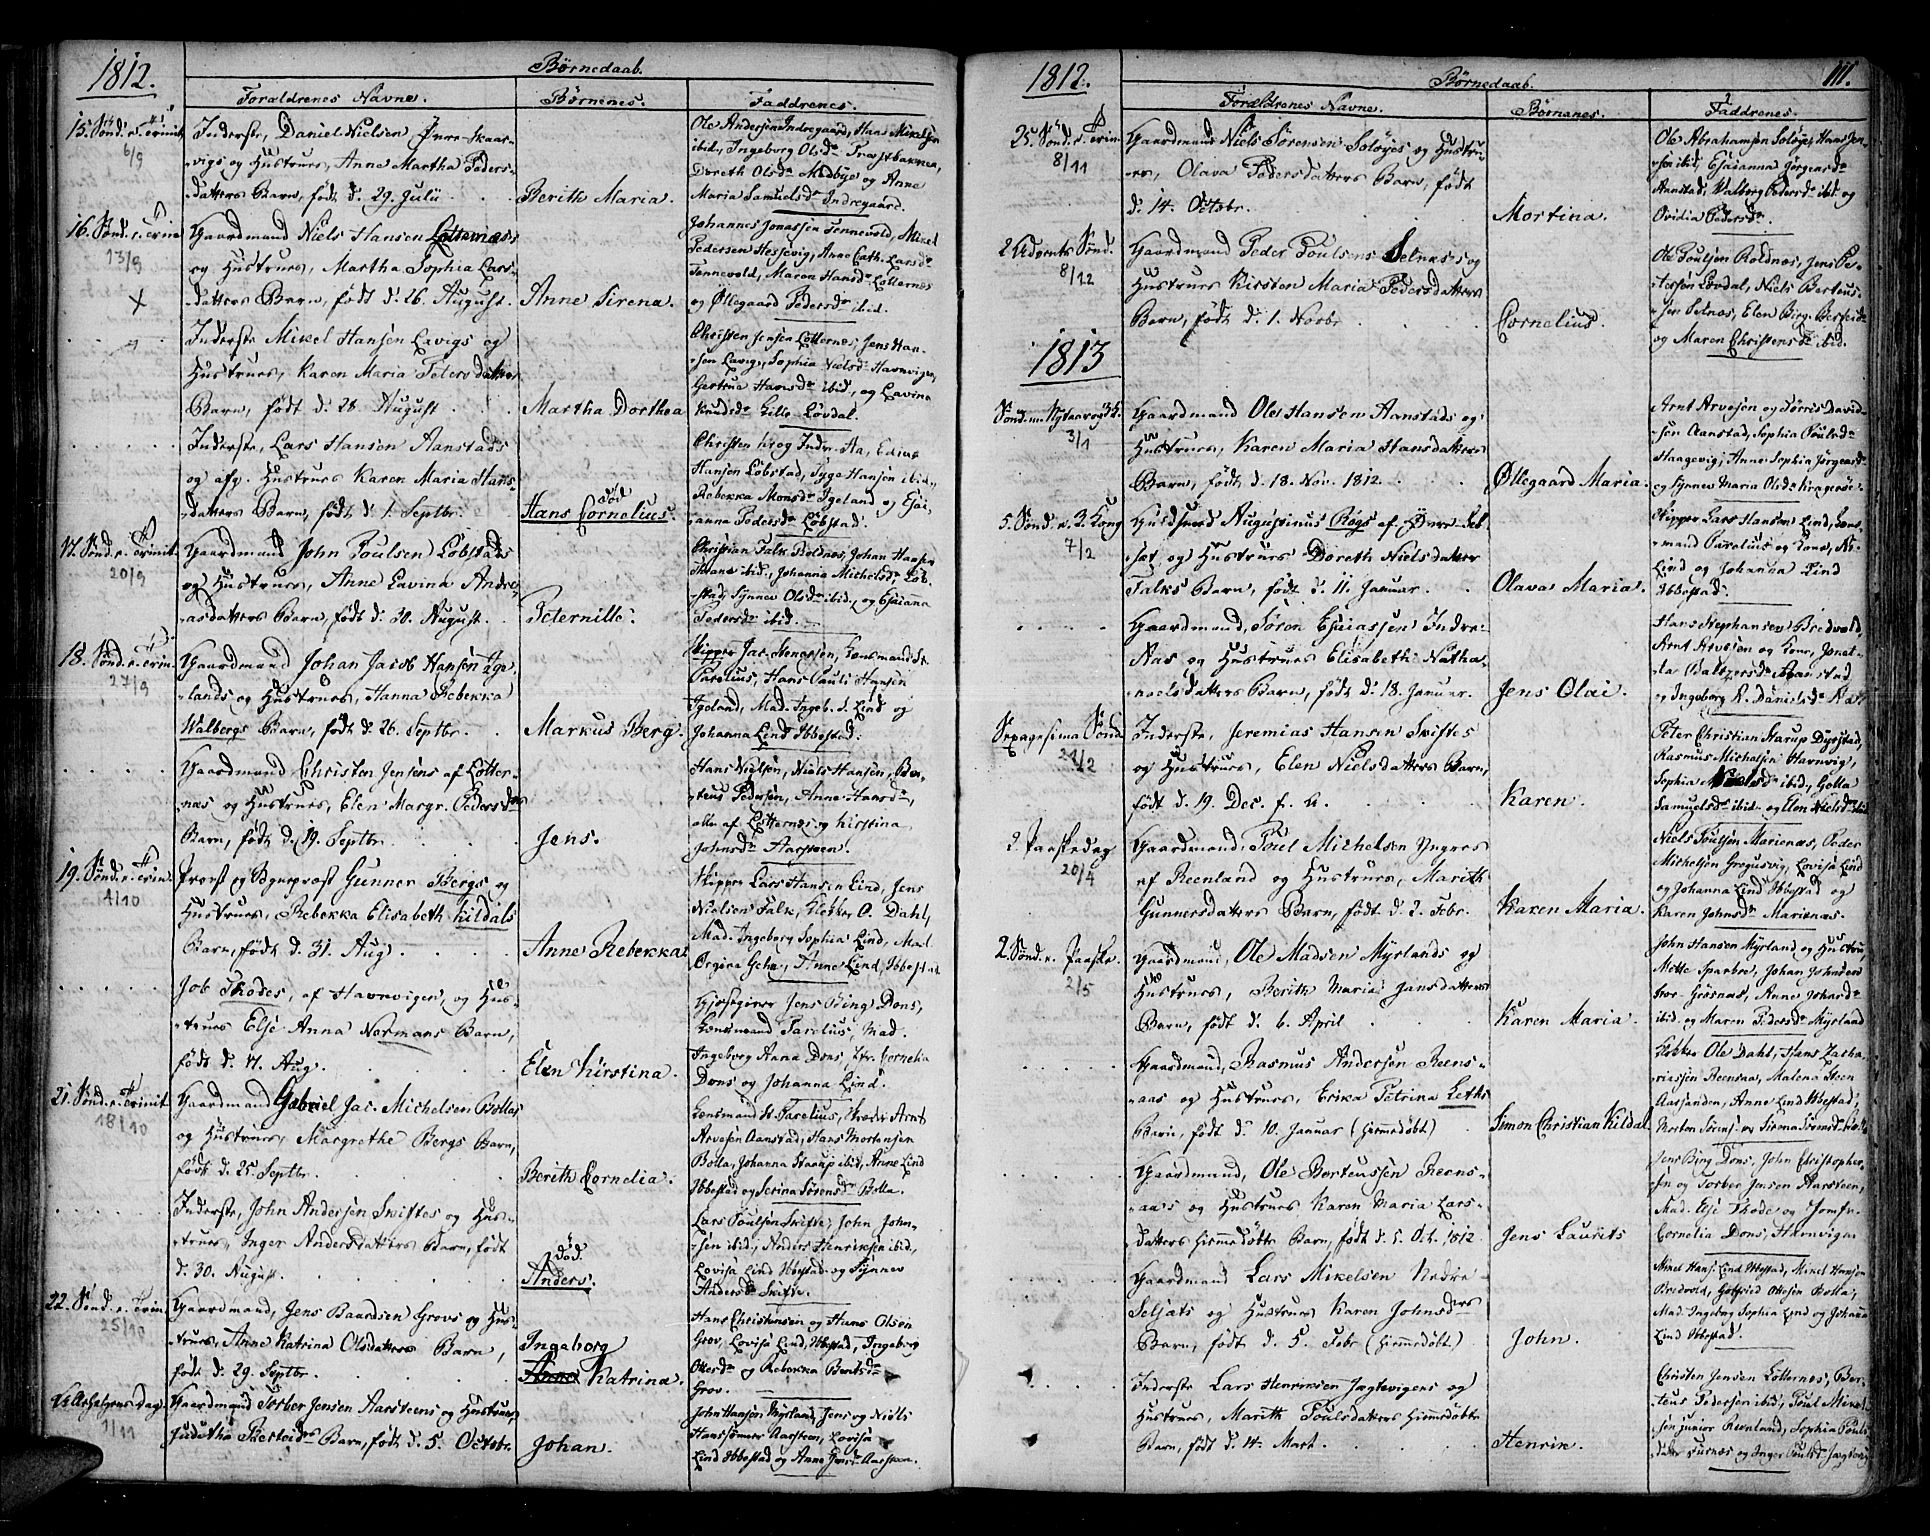 1812.
Børnedaab.
Forældrenes Navne.
Børnenes.
Faddrenes.
15. Sønd. e. Trinit.
6/9
Inderste, Daniel Nielsen Øvre-Skaar-
-vigs og Hustrues, Anne Martha Peders-
datters Barn, født d. 29. Julii
Berith Maria.
Ole Andersen Indregaard, Hans Mikelsen
ibid., Ingeborg Olsdr. Præstbakken,
Doreth Olsdr. Medbye og Anne
Maria Samuelsdr. Indregaard.
16. Sønd. e. Trinit.
13/9
Gaardmand Niels Hansen Lotternæs
og Hustrues, Martha Sophia Lars-
datters Barn, født d. 26. August.
Anne Sirena.
Johannes Jonassen Tennevold, Mikel
Pedersen Hessevig, Anne Cath. Larsdr.
Tennevold, Maren Hansdr. Lotternes
og Øllegaard Pedersdr. ibid.
Inderste Mikel Hansen Lavigs og
Hustrues, Karen Maria Petersdatters
Barn, født d. 28. August
Martha Dorthea
Christen Jensen Lotternes, Jens Han-
-sen Lavig, Sophia Nielsdr. Havnvigen,
Gertrue Hansdr. ibid, og Lavina
Knudsdr. Lille Løvdal.
Inderste, Lars Hansen Aanstads
og afg. Hustrues Karen Maria Hans-
datters Barn, født d. 1. Septbr.
død
Hans Cornelius.
Christen Krog Indre-Aa,
Hansen Løbstad, Hansen ibid.,
Rebekka Monsdr. Igeland og Esai-
anna Pedersdr. Løbstad.
17. Sønd. e. Trinit.
20/9
Gaardmand John Poulsen Løbstads
og Hustrues, Anne Lavina Andre-
asdatters Barn, født d. 30. August.
Peternille.
Christian Falk Roldnes, Johan Haaper
Thane ibid., Johanna Michelsdr. Løb-
-stad, Synnev Olsdr. ibid., og Esaianna
Pedersdr. ibid.
18. Sønd. e. Trin.
27/9
Gaardmand Johan Jacob Hansen Ige-
-lands og Hustrues, Hanna Rebekka
Walbergs Barn, født d. 26. Septbr.
Markus Berg.
Skipper Jac. Stenersen, Lensmand
Parelius, Hans Pauli Hansen
Igeland, Mad. Ingeb. S. Lind og
Johanna Lind Ibbestad.
Gaardmand Christen Jensens af Lotter-
næs og Hustrues, Elen Margr. Pedersdrs
Barn, født d. 19. Septbr.
Jens.
Hans Nielsen, Niels Hansen, Ber-
-teus Pedersen, Anne Hansdr.,
alle af Lotternes og Kirstina
Johnsdr. Aarsteen.
19. Sønd. e. Trin.
4/10
Provst og Sognepræst Gunner Bergs og
Hustrues, Rebekka Elisabeth Kildals
Barn, født d. 31. Aug.
Anne Rebekka
Skipper Lars Hansen Lind, Jens
Nielsen Falk, Klokker O. Dahl,
Mad. Ingeborg Sophia Lind, Mad.
Anne Lind, Ibbestad
Job Thodes, af Havnvigen, og Hus-
-trues Else Anna Normans Barn,
født d. 17. Aug.
Elen Kirstina.
Gjæstgiver Jens Bing Dons,
Lensmand Parelius, Mad.
Ingeborg Anna Dons, Cornelia
Dons og Johanna Lind.
21. Sønd. e. Trinit.
18/10
Gaardmand Gabriel Jac. Michelsen Bollas
og Hustrues, Margrethe Bergs Barn,
født d. 25. Septbr.
Berith Cornelia.
Lensmand H. Parelius, Arnt
Arvesen Aanstad, Hans Mortensen
Bolla, Johanna Haarup ibid, Anne Lind
Ibbestad og Serina Sørensdr. Bolla.
Inderste, John Andersen Skiftes og Hus-
-trues, Inger Andersdatters Barn, født
d. 30. August.
død.
Anders.
Lars Poulsen Skifte, John John-
-sen ibid, Anders Henriksen ibid,
Lovisa Lind Ibbestad og Synnev
Andersdr. Skifte.
22. Sønd. e. Trin.
25/10
Gaardmand, Jens Baardsen Grovs og Hus-
-trues, Anne Katrina Olsdatters Barn,
født d. 29. Septbr.
Ingeborg
Anne Katrina.
Hans Christensen og Hans Olsen
Grov, Lovisa Lind Ibbestad, Ingeborg
Ottesdr. og Rebekka Bentsdr.
Grov.
Allehelgens Dag
1/11
Gaardmand Torber Jensen Aarsteens og Hustrues
Juditha Barn, født d. 5. Octobr.
Johan.
John Hansen Myrland, Jens og Niels
Hanssønner Aarsteen, Lovisa
Lind Ibbestad og Anne Jensdr. Aarsteen.
1812.
Børnedaab.
111.
Forældrenes Navne.
Børnenes.
Faddrenes.
25. Sønd. e. Trin.
8/11
Gaardmand Niels Sørensen Soløyes og Hustru-
es, Olava Pedersdatters Barn, født
d. 14. Octobr.
Mortina.
Ole Abrahamsen Soløye, Hans Jen-
-sen ibid, Esaianna Jørgensdr.
Aanstad, Walborg Pedersdr. ibid. og
Ovidia Pedersdr.
2. Advents Sønd.
8/12
Gaardmand Peder Poulsens Selnæs og
Hustrues Kirsten Maria Pedersdatters
Barn, født d. 1. Novbr.
Cornelius.
Ole Poulsen Roldnæs, Jens Pe-
-tersen Løvdal, Niels Berteus-
-sen Selnæs, Elen Birg.
og Maren Christensdr. ibid.
1813
Sønd. m. Nytaar og 3 K.
3/1
Gaardmand Ole Hansen Aanstads og
Hustrues, Karen Maria Hansdatters
Barn, født d. 18. Nov. 1812.
Øllegaard Maria.
Arnt Arvesen og Tørris David-
-sen Aanstad, Sophia Poulsdr.
Haagevig, Anne Sophia Jørgensdr.
og Synnev Maria Olsdr. Kragerøe
5. Sønd. e. 3. Kong.
7/2
Huusmand Augustinus Røgs af Øvre-Sel-
-set og Hustrues Doreth Nielsdatter
Falks Barn, født d. 11. Januar.
Olava Maria.
Skipper Lars Hansen Lind, Lens-
-mand Parelius og Kone,
Lind og Johanna Lind
Ibbestad.
Gaardmand, Søren Esaiassen Indre-
Aas og Hustrues Elisabeth Natha-
-naelsdatters Barn, født d. 18. Januar.
Jens Olai.
Hans Stephansen Bredvold,
Arnt Arvesen og Kone,
Aanstad
og Ingeborg K. Danielsdr.
Sexagesima Sønd.
21/2
Inderste, Jeremias Hansen Skiftes
og Hustrues, Elen Nielsdatters Barn,
født d. 19. Dec. f. A.
Karen.
Peter Christian Harup Dyrstad,
Rasmus Michelsen Havnvig,
Sophia ibid, Golla
Samuelsdr. ibid. og Elen Nielsdr. ibid
2. Paaskedag
20/4
Gaardmand, Poul Michelsen Yngres
af Reenland og Hustrues, Marith
Gunnersdatters Barn, født d. 2. Febr.
Karen Maria.
Niels Poulsen Marienæs, Peder
Michelsen Gregusvig, Lovisa Lind
og Johanna Lind Ibbestad og
Karen Johnsdr. Marienæs.
2. Sønd. e. Paaske.
2/5
Gaardmand, Ole Madsen Myrlands og
Hustrues, Berith Maria Jansdatters
Barn, født d. 6. April
Karen Maria.
John Hansen Myrland og Hustrue,
Mette Sparboe, Johan Johnsen
Stor-Grøsnæs, Anne Johnsdr.
ibid. og Maren Pedersdr. Myrland
Gaardmand, Rasmus Andersen Reens-
-aas og Hustrues, Erika Petrina Leths
Barn, født d. 10. Januar (hiemmedøbt)
Simon Christian Kildal
Klokker Ole Dahl, Hans Zacha-
riassen Reensaa, Malena Steen
Aarsanden, Anne Lind Ibbestad,
Morten Sørens. og Sirena Sørensdr.
Gaardmand, Ole Berteussen Reens-
-aas og Hustrues Karen Maria Lars-
-datters hiemmedøbte Barn, født d. 5. Oct. 1812
Jens Laurits
Jens Bing Dons, John Christopher-
-sen og Torber Jensen Aarsteen,
Mad. Else Thode og Jomfr.
Cornelia Dons, Havnvigen
Gaardmand Lars Mikelsen Nedre-
Seljæts og Hustrues Karen Johnsdrs
Barn, født d. 5. Febr. (hiemmedøbt.)
John.
Mikel Hans. Lind Ibbestad, Mikel Hansen
Bredvold, Gotfried Ottesen Bolla,
Mad. Ingeborg Sophia Lind og Johanna
Lind Ibbestad.
Inderste Lars Henriksen Jægtevigens og
Hustrues, Marith Poulsdatters hiemmedøbte
Barn, født d. 14. Mart.
Henrik.
Christen Jensen Lotternes, Ber-
teus Pedersen ibid, Poul Mikel-
sen junior Reenland, Sophia Pouls-
datter Furnæs og Inger Poulsdr. Jægtevig